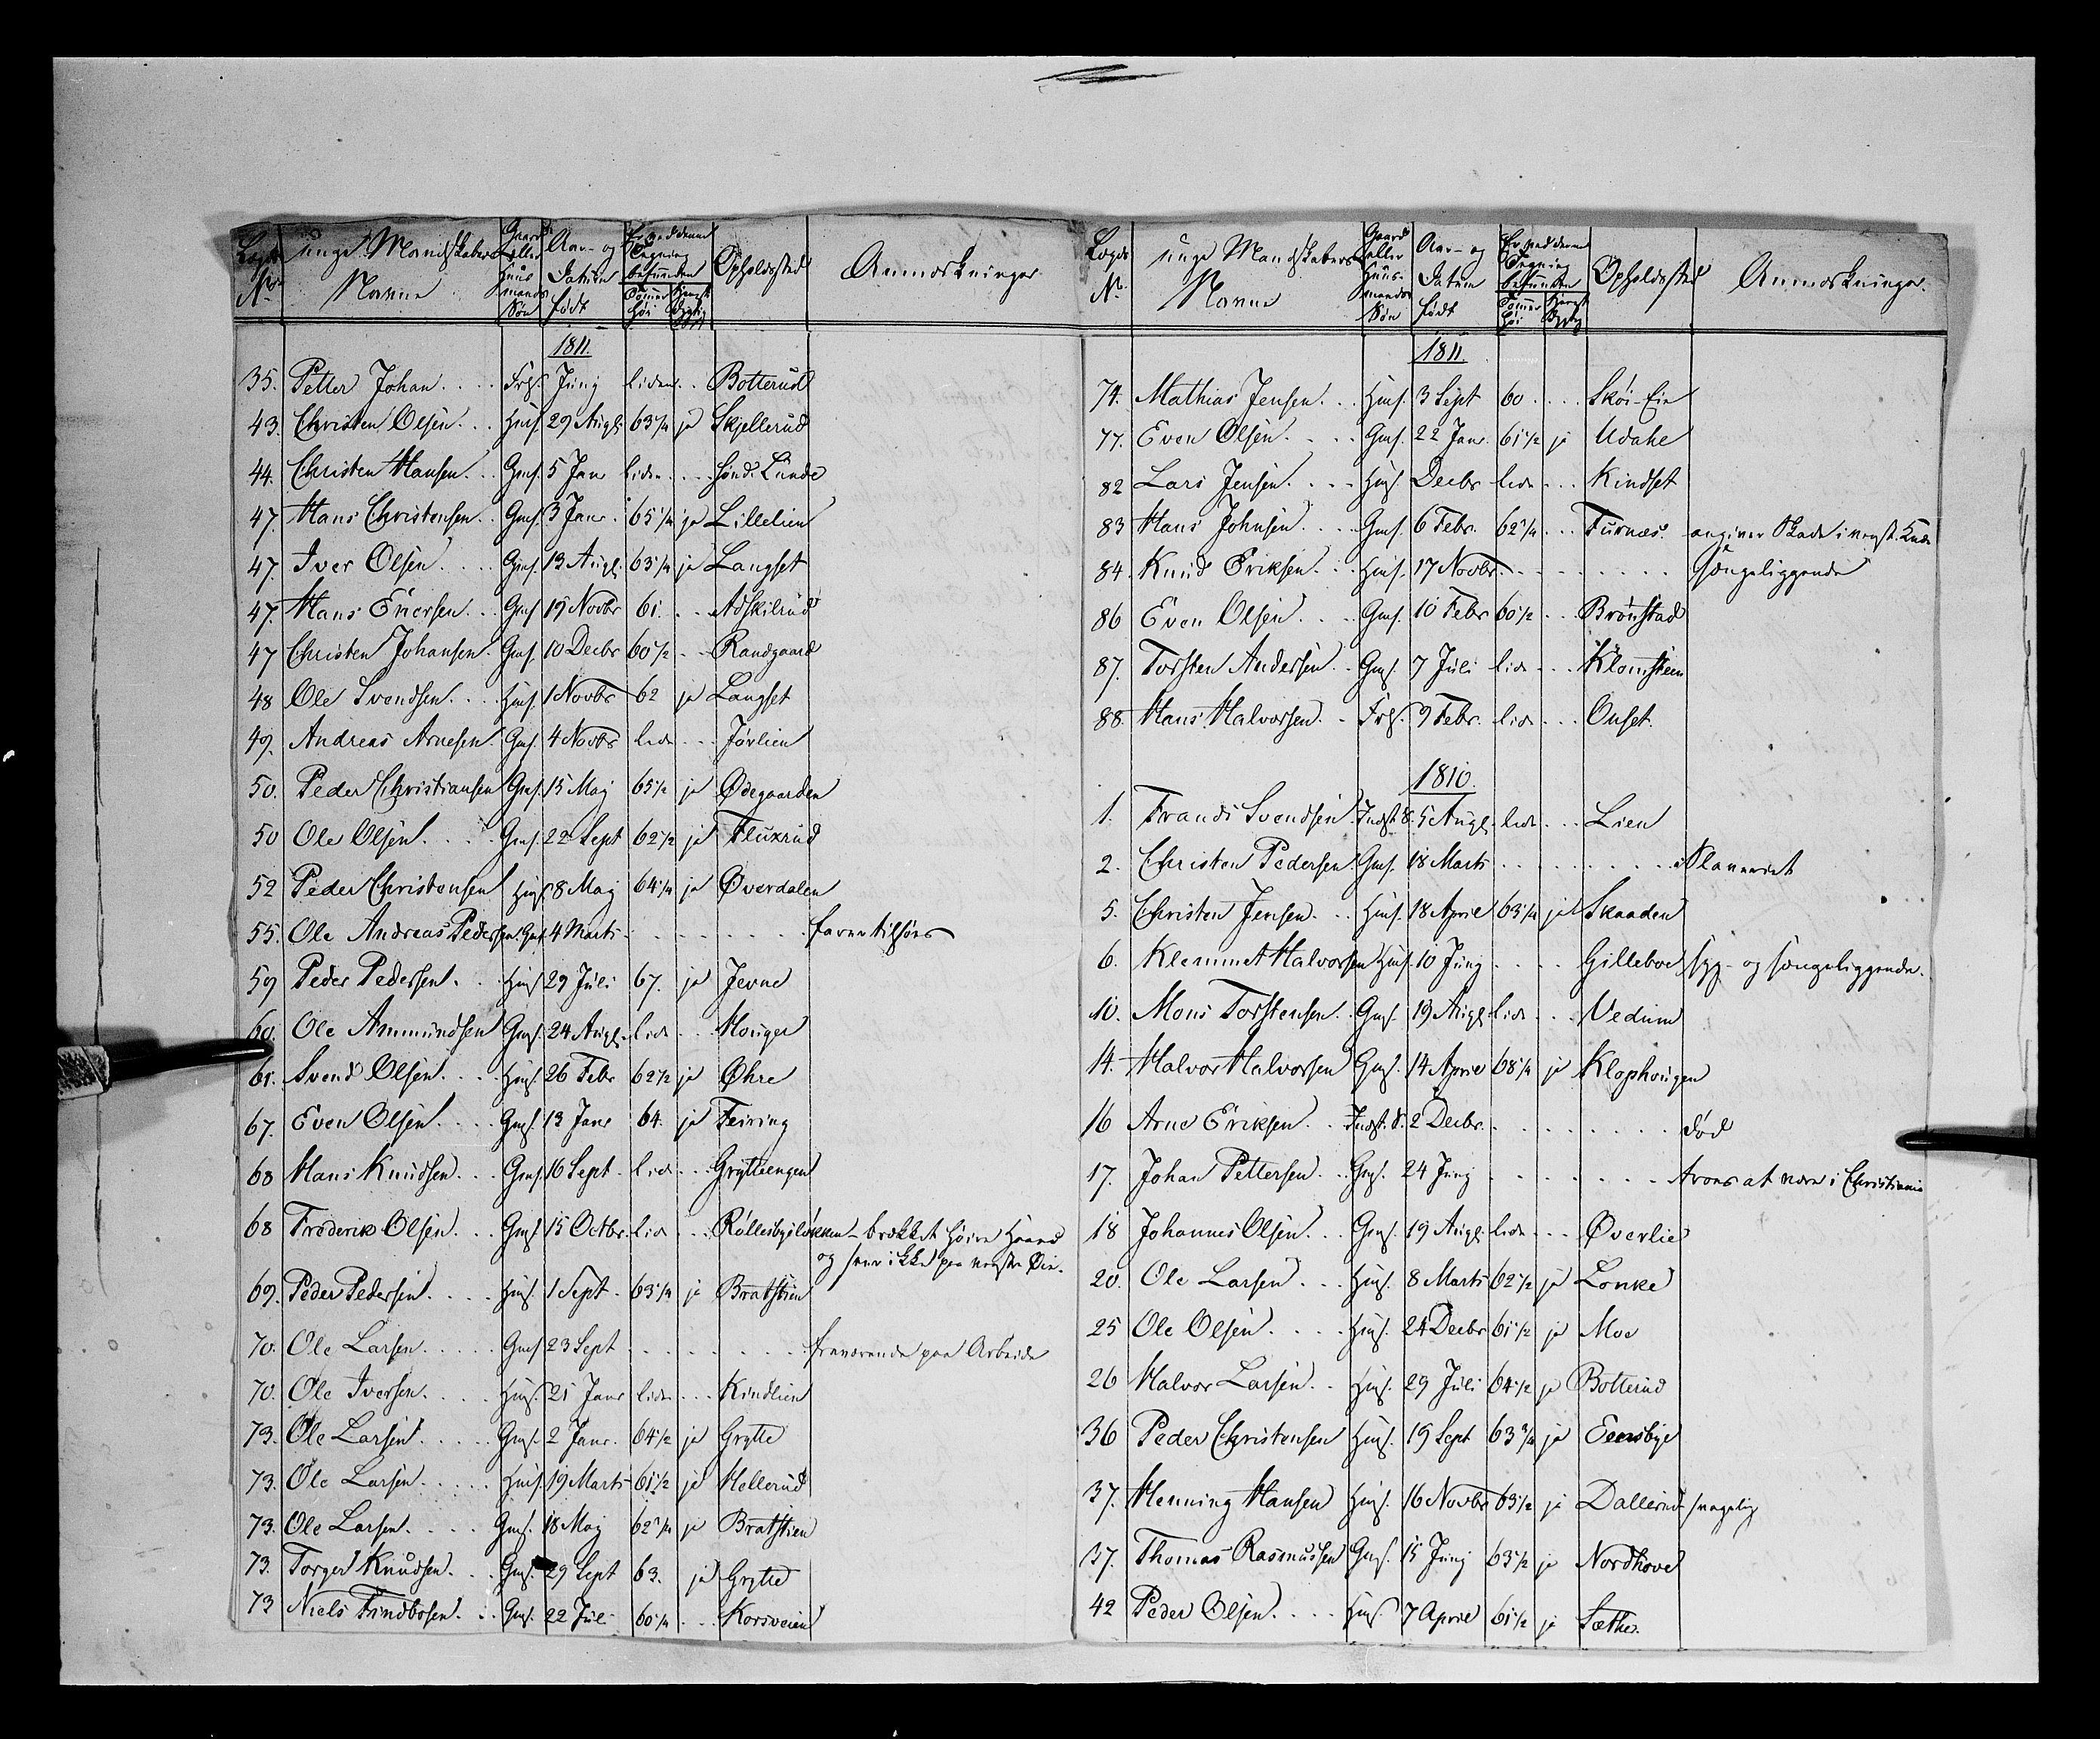 Lægds No | unge Mandskabers Navne | Gaard eller Huus mands Søn | Aar- og Datum født | Er ved denne Tegning befunden Tommer høi | Krigst Dygtig | Opholdssted | Anmærkninger
1811.
35. Petter Johan .... Frs. Juny liden .. Botterud
43. Christen Olsen ... Hms. 29 Augt. 63 1/4 ja Skjellerud
44. Christen Hansen .. Gms. 5 Janr liden ... Sønd. Lunde
47. Hans Christensen .. Gms. 3 Janr. 65 1/4 ja Lillelien
47. Iver Olsen .... Gms. 13 Augt. 63 1/4 ja Langset
47. Hans Eversen .. Gms 19 Novbr 61. .. Adskilrud
47 Christen Johansen. Gms. 10 Decbr 60 1/2 .. Randgaard
48 Ole Svendsen .... Hms. 1 Novbr 62 ja Langset
49. Andreas Arnesen. Gms. 4 Novbr liden ... Jørlien
50. Peder Christiansen Gms. 15 Maj 65 1/2 ja Ødegaarden
50 Ole Olsen .... Gms. 22 Sept 62 1/2 ja Fluxrud
52 Peder Christensen Hms. 8 Maj 64 1/4 ja Øverdalen
55. Ole Andreas Pedersen. Gms 4 Marts ........ farer tilsøes
59 Peder Pedersen .. Hms 29 Juli 67. ja Jevne
60. Ole Ammundsen Gms. 24 Augt. lid. ... Houger
61. Svend Olsen .... Hms. 26 Febr 62 1/2 ja Øhre
67. Even Olsen .... Gms. 13 Janr 64. ja Feiring
68 Hans Knudsen ... Gms. 16 Sept. lid. .. Grytteengen
68 Frederik Olsen ... Gms. 15 Octbr. lid ... Rollesbyeløkken – brækket høire Haand
og seer ikke paa venstre Øie.
69. Peder Pedersen .... Hms. 1 Sept. 63 1/4 ja Bratstien
70. Ole Larsen .... Gms 23 Sept ........ fraværende paa Arbeide
70. Ole Iversen .... Hms. 21 Janr liden ... Kindlien
73. Ole Larsen .... Gms. 2 Janr. 64 1/2 ja Grytte
73. Ole Larsen .... Hms. 19 Marts 61 1/2 ja Hellerud
73. Ole Larsen .... Gms. 18 Maj 62 3/4 ja Bratstien
73. Torger Knudsen ... Gms. 29 Sept 63. ja Grytte
73 Niels Frindtosen ... Gms. 22 Juli 60 1/4 ... Korsveien
Lægds No. | unge Mandskabers Navne | Gaard eller Huus- mands Søn | Aar- og Datum født | Er ved denne Tegning befunden Tommer høi | Krigst Dygtig | Opholdssted | Anmærkninger.
1811.
74. Mathias Jensen ... Hms. 3 Sept 60 .... Skøi-Eie
77. Even Olsen .... Gms. 22 Janr. 61 1/2 ja Udahe
82 Lars Jensen .... Hms. Decbr lid. ... Kindset
83 Hans Johnsen .... Gms. 6 Febr. 62 1/4 ... Furnæs. angiver Skade i venst. Knæ
84. Knud Eriksen ... Hms. 17 Novbr. ........ Sængeliggende
86 Even Olsen .... Gms. 10 Febr 60 1/2 ... Brønstad
87. Torsten Andersen .. Gms. 7 Juli lid. ... Klomsteen
88. Hans Halvorsen. . Frs. 9 Febr. lid. ... Onset.
1810.
1. Trands Svendsen. Indst.S. 5 Augt. lid. ... Lien
2. Christen Pedersen. Gms. 18 Marts ........ Slaveriet
5. Christen Jensen. .. Hms. 18 April 63 1/4 ja Skaaden
6. Klemmet Halvorsen Hms. 10 Juny .... Gilleboe syg- og sængeliggende.
10. Mons Torstensen .. Gms. 19 Augt. lid. ... Vedum
14. Halvor Halvorsen Gms. 14 April 68 1/4 ja Klophougen
16 Arne Eriksen .. Indst.S. 2 Decbr. ........ død
17. Johan Pettersen .. Gms. 24 Juny ........ troes at være i Christiania
18 Johannes Olsen ... Gms. 19 Augt. liden ... Øverlie
20. Ole Larsen ... Hms. 8 Marts 62 1/2 ja Lonke
25 Ole Olsen .... Hms. 24 Decbr 61 1/2 ja Moe
26 Halvor Larsen .. Hms. 29 Juli 64 1/2 ja Botterud
36 Peder Christensen Hms. 19 Sept 63 3/4 ja Eensbye
37. Henning Hansen Hms. 16 Novbr 63 1/2 ja Dallerud svagelig
37. Thomas Rasmussen Gms. 15 Juny 63 1/2 ja Nordhove
42 Peder Olsen .... Hms. 7 April 61 1/2 ja Sæther.